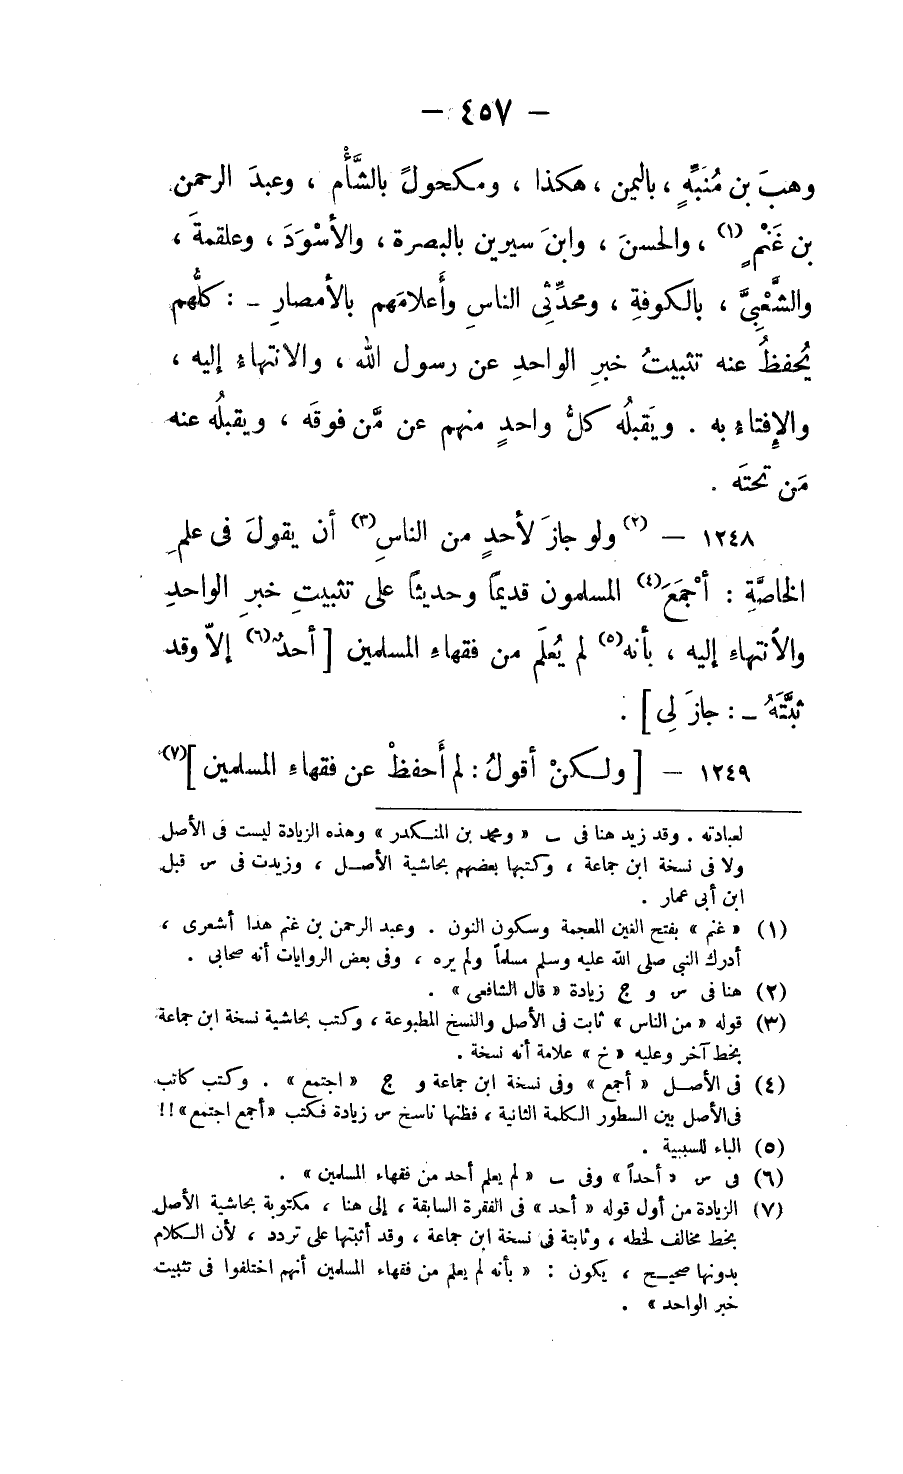 — ٤٥٧ —
وهبَ بن مُنَبِّهٍ ، باليمن ، هكذا ، ومكحولً بالشَّأْم ، وعبدَ الرحمن
بن غَنْمٍ (١) ، والحسنَ ، وابنَ سيرين بالبصرة ، والأسْوَدَ ، وعلقمةَ ،
والشَّعْبِيَّ ، بالكوفةِ ، ومحدِّثِي الناسِ وأَعلامَهم بالأمصارِ – : كلُّهم
يُحفظُ عنه تثبيتُ خبرِ الواحدِ عن رسول الله ، والانتهاءُ إليه ،
والإفتاءُ به . ويَقبلُه كلُّ واحدٍ منهم عن مَّن فوقَه ، ويقبلُه عنه
مَن تحتَه .
١٢٤٨ — (٢) ولو جازَ لأحدٍ من الناسِ (٣) أن يقولَ فى علمِ
الخاصَّةِ : أَجْمَعَ (٤) المسلمون قديمًا وحديثًا على تثبيتِ خبرِ الواحدِ
والأنتهاءِ إليه ، بأنه (٥) لم يُعلَم من فقهاءِ المسلمين [ أحدٌ (٦) إلاّ وقد
ثبَّتَهُ – : جازَ لِي ] .
١٢٤٩ — [ ولكنْ أقولُ : لم أَحفظْ عن فقهاءِ المسلمين ] (٧)
لعبادته . وقد زيد هنا فى ب « ومحمد بن المنكدر » وهذه الزيادة ليست فى الأصل
ولا فى نسخة ابن جماعة ، وكتبها بعضهم بحاشية الأصل ، وزيدت فى س قبل
ابن أبى عمار .
(١) « غنم » بفتح الغين المعجمة وسكون النون . وعبد الرحمن بن غنم هذا أشعرى ،
أدرك النبى صلى الله عليه وسلم مسلماً ولم يره ، وفى بعض الروايات أنه صحابى .
(٢) هنا فى س و ج زيادة « قال الشافعى » .
(٣) قوله « من الناس » ثابت فى الأصل والنسخ المطبوعة ، وكتب بحاشية نسخة ابن جماعة
بخط آخر وعليه « خ » علامة أنه نسخة .
(٤) فى الأصل « أجمع » وفى نسخة ابن جماعة و ج « اجتمع » . وكتب كاتب
فى الأصل بين السطور الكلمة الثانية ، فظنها ناسخ س زيادة فكتب « أجمع اجتمع » !!
(٥) الباء للسببية .
(٦) فى س « أحداً » وفى ب « لم يعلم أحد من فقهاء المسلمين » .
(٧) الزيادة من أول قوله « أحد » فى الفقرة السابقة ، إلى هنا ، مكتوبة بحاشية الأصل
بخط مخالف لخطه ، وثابتة فى نسخة ابن جماعة ، وقد أثبتها على تردد ، لأن الكلام
بدونها صحيح ، يكون : « بأنه لم يعلم من فقهاء المسلمين أنهم اختلفوا فى تثبيت
خبر الواحد » .